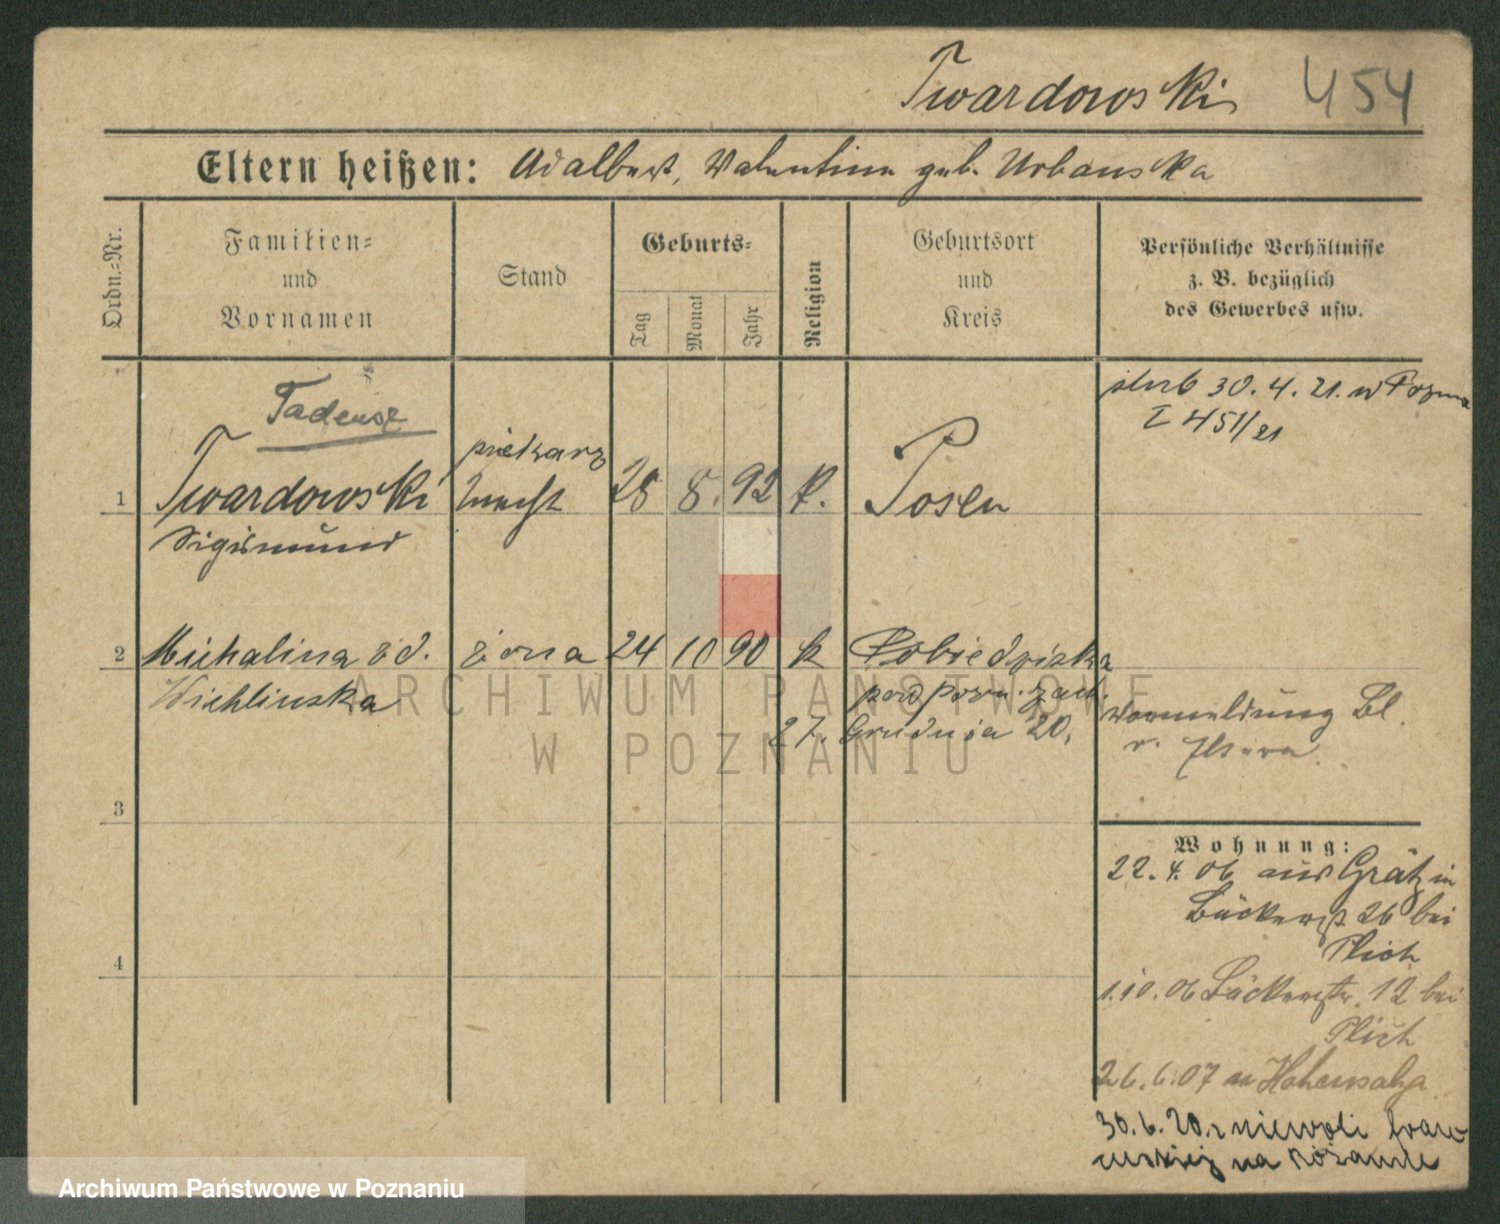 Twardowski 454
Eltern heißen: Adalbert, Valentine geb. Urbanska
Ordn.=Nr.
Familien=
und
Vornamen
Stand
Geburts=
Tag
Monat
Jahr
Religion
Geburtsort
und
Kreis
Persönliche Verhältnisse
z. B. bezüglich
des Gewerbes usw.
Tadeusz
piekarz
1 Twardowski 28 8. 92 k. Posen
Sigismund
ślub 30. 4. 21. w Pozna
I 451/21
2 Michalina zd. żona 24 10 90 k Pobiedziska
Wichlinska
pod pozn. zach.
27. Grudnia 20.
Vormeldung Bl.
v.
3
4
Wohnung:
22. 4. 06 aus Grätz in
Bäckerst 26 bei
Plich
1.10.06 Bäckerstr. 12 bei
Plich
26. 6. 07 n Hohensalza
30. 6. 20. z niewoli fran
cuskiej na Różanne
ARCHIWUM PAŃSTWOWE
W POZNANIU
Archiwum Państwowe w Poznaniu